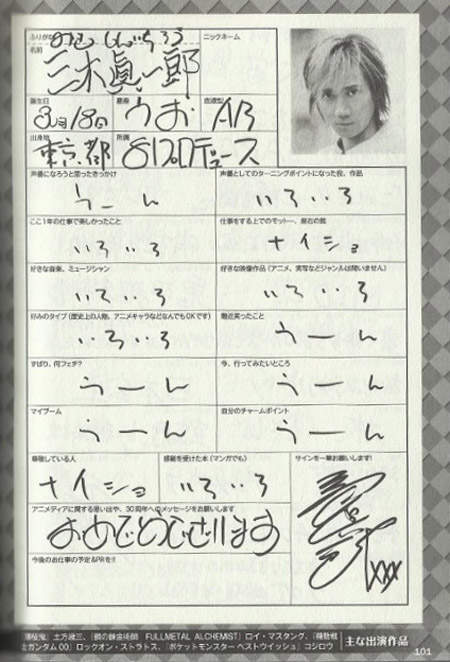 ふりがな みき しんいちろう ニックネーム
名前 三木眞一郎
誕生日 3月18日 星座 うお 血液型 AB
出身地 東京都 所属 81プロデュース
声優になろうと思ったきっかけ 声優としてのターニングポイントになった役、作品
うーん いろいろ
ここ1年の仕事で楽しかったこと 仕事をする上でのモットー、座右の銘
いろいろ ナイショ
好きな音楽、ミュージシャン 好きな映像作品(アニメ、実写などジャンルは問いません)
いろいろ いろいろ
好みのタイプ(歴史上の人物、アニメキャラなどなんでもOKです) 最近笑ったこと
いろいろ うーん
ずばり、何フェチ? 今、行ってみたいところ
うーん うーん
マイブーム 自分のチャームポイント
うーん うーん
尊敬している人 感銘を受けた本(マンガでも) サインを一筆お願いします!
ナイショ いろいろ
アニメディアに関する思い出や、30周年へのメッセージをお願いします
おめでとうございます
xxx
今後のお仕事の予定&PRを!!
土方歳三、『鋼の錬金術師 FULLMETAL ALCHEMIST』ロイ・マスタング、
ガンダム00』ロックオン・ストラトス、『ポケットモンスター ベストウイッシュ』コジロウ
主な出演作品
101